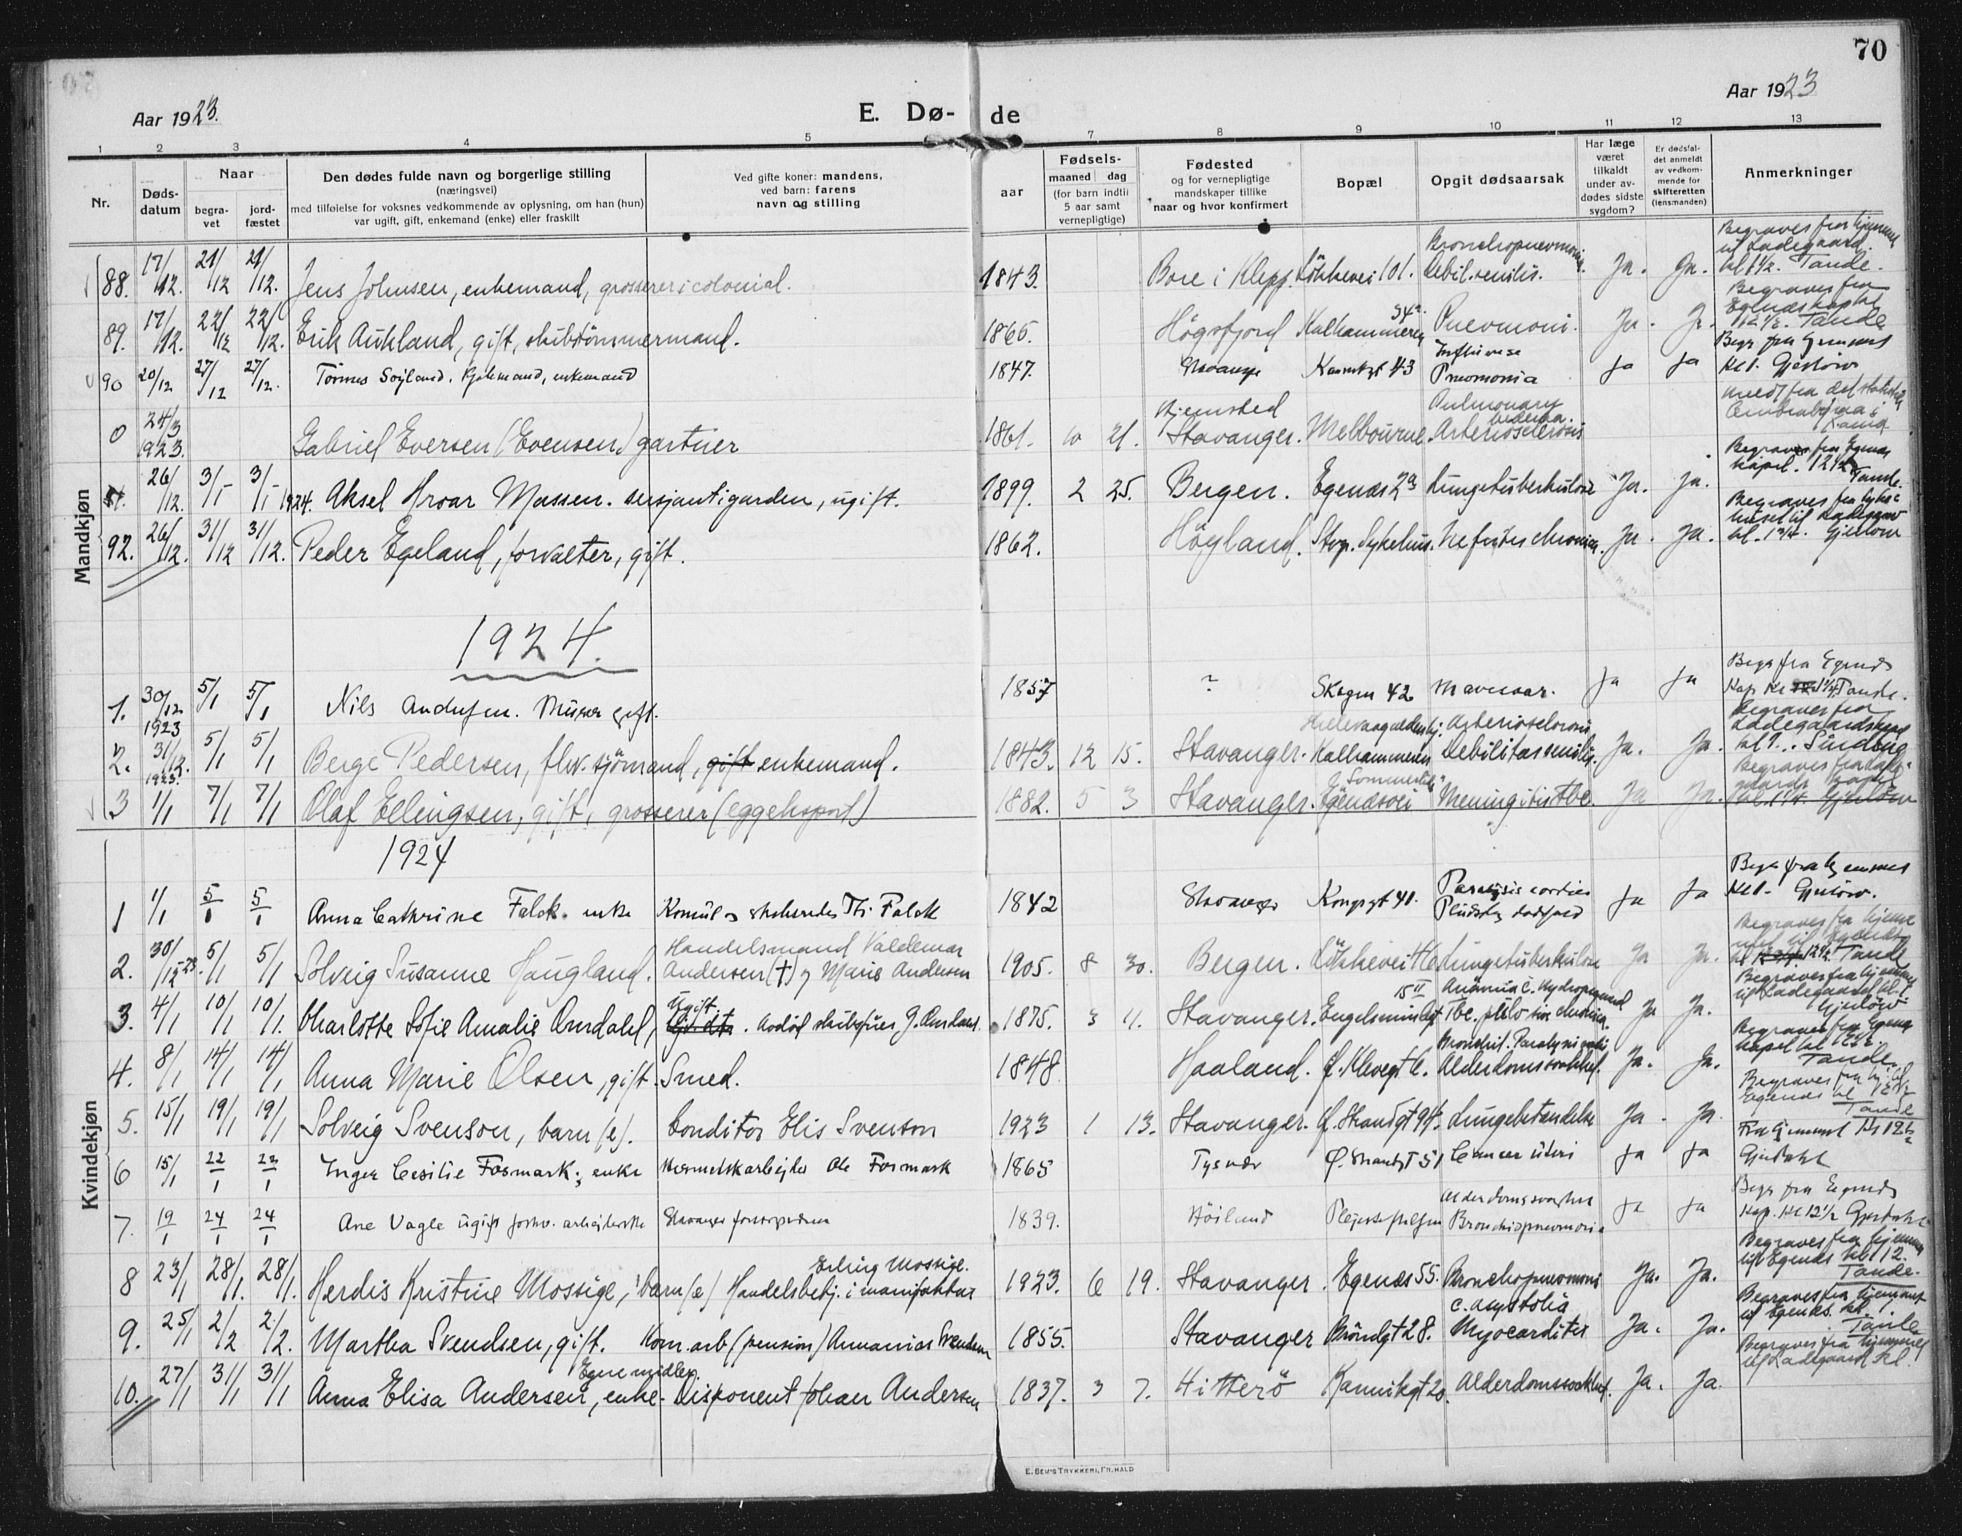 70
Aar 1923.
E. Dø- de
Aar 1923
1 2 3 4 5 7 8 9 10 11 12 13
Nr.
Døds-
datum
Naar
begra-
vet
jord-
fæstet
Den dødes fulde navn og borgerlige stilling
(næringsvei)
med tilføielse for voksnes vedkommende av oplysning, om han (hun)
var ugift, gift, enkemand (enke) eller fraskilt
Ved gifte koner: mandens,
ved barn: farens
navn og stilling
aar
Fødsels-
maaned dag
(for barn indtil
5 aar samt
vernepligtige)
Fødested
og for vernepligtige
mandskaper tillike
naar og hvor konfirmert
Bopæl
Opgit dødsaarsak
Har læge
været
tilkaldt
under av-
dødes sidste
sygdom?
Er dødsfal-
det anmeldt
av vedkom-
mende for
skifteretten
(lensmanden)
Anmerkninger
Mandkjøn
88. 17/12. 21/12 21/12. Jens Johnsen, enkemand, grosserer i colonial. 1843. Bore i Klepp. Løkkevei 101. Bronchopneumoni. Debil. senilis. Ja. Ja. Begraves fra hjemmet til Ladegaard. kl 1 1/2. Tande.
89. 17/12. 22/12 22/12. Erik Aukland, gift, skibstømmermand. 1866. Høgsfjord Kalhammeren 34 Pneumoni. Ja. Ja. Begraves fra Egenæs kapel 12 1/2. Tande
90 20/12 27/12 27/12. Søyland. enkemand 1847. Stavanger 43 Influense Pneumonia Ja Ja Begr fra Hjemmet Kl 1. Gjerløw
0 24/3 1923. Gabriel Eversen (Evensen) gartner 1861. 10 21. Hjemsted Stavanger. Melbourne. Pulmonary oedema. Arteriosclerosis
26/12. 3/1 3/1 1924. Aksel Hroar Massen. sersjant i garden, ugift. 1899. 2 25. Bergen. Egenæs 23 Lungetuberkulose Ja. Ja. Begraves fra Egenæs kapel. 12 1/2 Tande.
92. 26/12. 31/12 31/12. Peder Egeland, forvalter, gift. 1862. Høyland. Stvgr. Sykehus. Nefrites chronica. Ja. Ja. Begraves fra sykehuset til Ladegaard kl. 1 3/4. Gjerløw
1924.
1. 30/12 1923 5/1 5/1 Nils Andersen. Murer gift. 1857 ? Skagen 42 Mavesaar. Ja Ja Begr fra Egenæs Kap. Kl 1 1/4 Tande.
2. 31/12. 1923. 5/1 5/1 Berge Pedersen, fhv. sjømand, gift enkemand. 1843. 12 15. Stavanger. Kalhammeren Arteriosclerosis, Debilitas senilis. Ja. Ja. Begraves fra Ladegaardskapel kl 1. Sinding
3 1/1 7/1 7/1 Olaf Ellingsen, gift, grosserer (eggeksport) 1882. 5 3 Stavanger. Egenæsvei Meningitis tbc. Ja Ja. Begraves fra Ladegaards kapel kl 1 1/4. Gjerløw
1924
Kvindekjøn
1 1/1 5/1 5/1 Anna Cathrine Falck. enke Konsul og skibsreder Th. Falck 1842 Stavanger Kongsgt 41. Paralysis cordis Pludselig dødsfald Ja Ja Begr. fra hjemmet Kl 1 - Gjerløw.
2. 30/12 23. 5/1 5/1 Solveig Susanne Haugland. Handelsmand Valdemar Andersen (†) og Marie Andersen 1905. 8 30. Bergen. Løkkevei Lungetuberkulose Ja Ja. Begraves fra hjemmet til Egenæs kl 12 1/2. Tande
3. 4/1 10/1 10/1. Charlotte Sofie Amalie Omdahl, Ugift. Avdød skibsfører G. Omdahl. 1875. 3 11. Stavanger. Engelsminde gt 15 II Anæmia c. Tbc. pulv Ja Ja. Begraves fra hjemmet til Ladegaard kl. 1 Gjerløw
4. 8/1 14/1 14/1 Anna Marie Olsen, gift. Smed. 1848 Haaland. Ø. Klevegt 6. Bronchit. Paralysis cordis Alderdomssvakhet. Ja. Ja. Begraves fra Egenæs kapel kl 12 1/2 Tande.
5. 15/1 19/1 19/1 Solveig Svenson, barn (e). Conditor Elis Svenson 1923 1 13. Stavanger. Ø. Strandgt 94. Lungebetændelse Ja. Ja. Begraves fra Egenæs kl 12 1/2 Tande
6 15/1 22/1 22/1 Inger Cesilie Fosmark; enke Hermetikarbeider Ole Fosmark 1865 Tysvær Ø. Strandgt 51 Cancer uteri Ja Ja Fra hjemmet Kl 12 1/2 Gjesdahl
7. 19/1 24/1 24/1 Ane Vagle ugift forhv. arbeiderske Stavanger forsorgsvæsen 1839. Høiland Pleiestiftelsen Alderdomssvakhet Bronchiopneumonia Ja Ja Begr fra Egenæs Kap. Kl 12 1/2 Gjesdahl
8 23/1 28/1. 28/1. Herdis Kristine Mossige, barn (e) Handelsbetj. i manifaktur Erling Mossige. 1923. 6 19. Stavanger. Egenæs 55. Bronchopneumoni c. asystolia Ja. Ja. Begraves fra hjemmet til Egenæs kl 12. Tande.
9. 25/1 2/2 2/2. Martha Svendsen, gift. Kom. arb (pension) Annanias Svendsen 1855. Stavanger Brøndgt 28. Myocarditis Ja. Ja. Begraves fra hjemmet til Egenæs. kl 1 Tande.
10. 27/1 31/1 31/1 Anna Elisa Andersen, enke. Egne midler. Disponent Johan Andersen 1837. 3 7. Hitterø Kannikgt 20. Alderdomssvakhet. Ja. Ja. Begraves fra hjemmet til Ladegaard kl
E. BEM'S TRYKKERI, FR. HALD